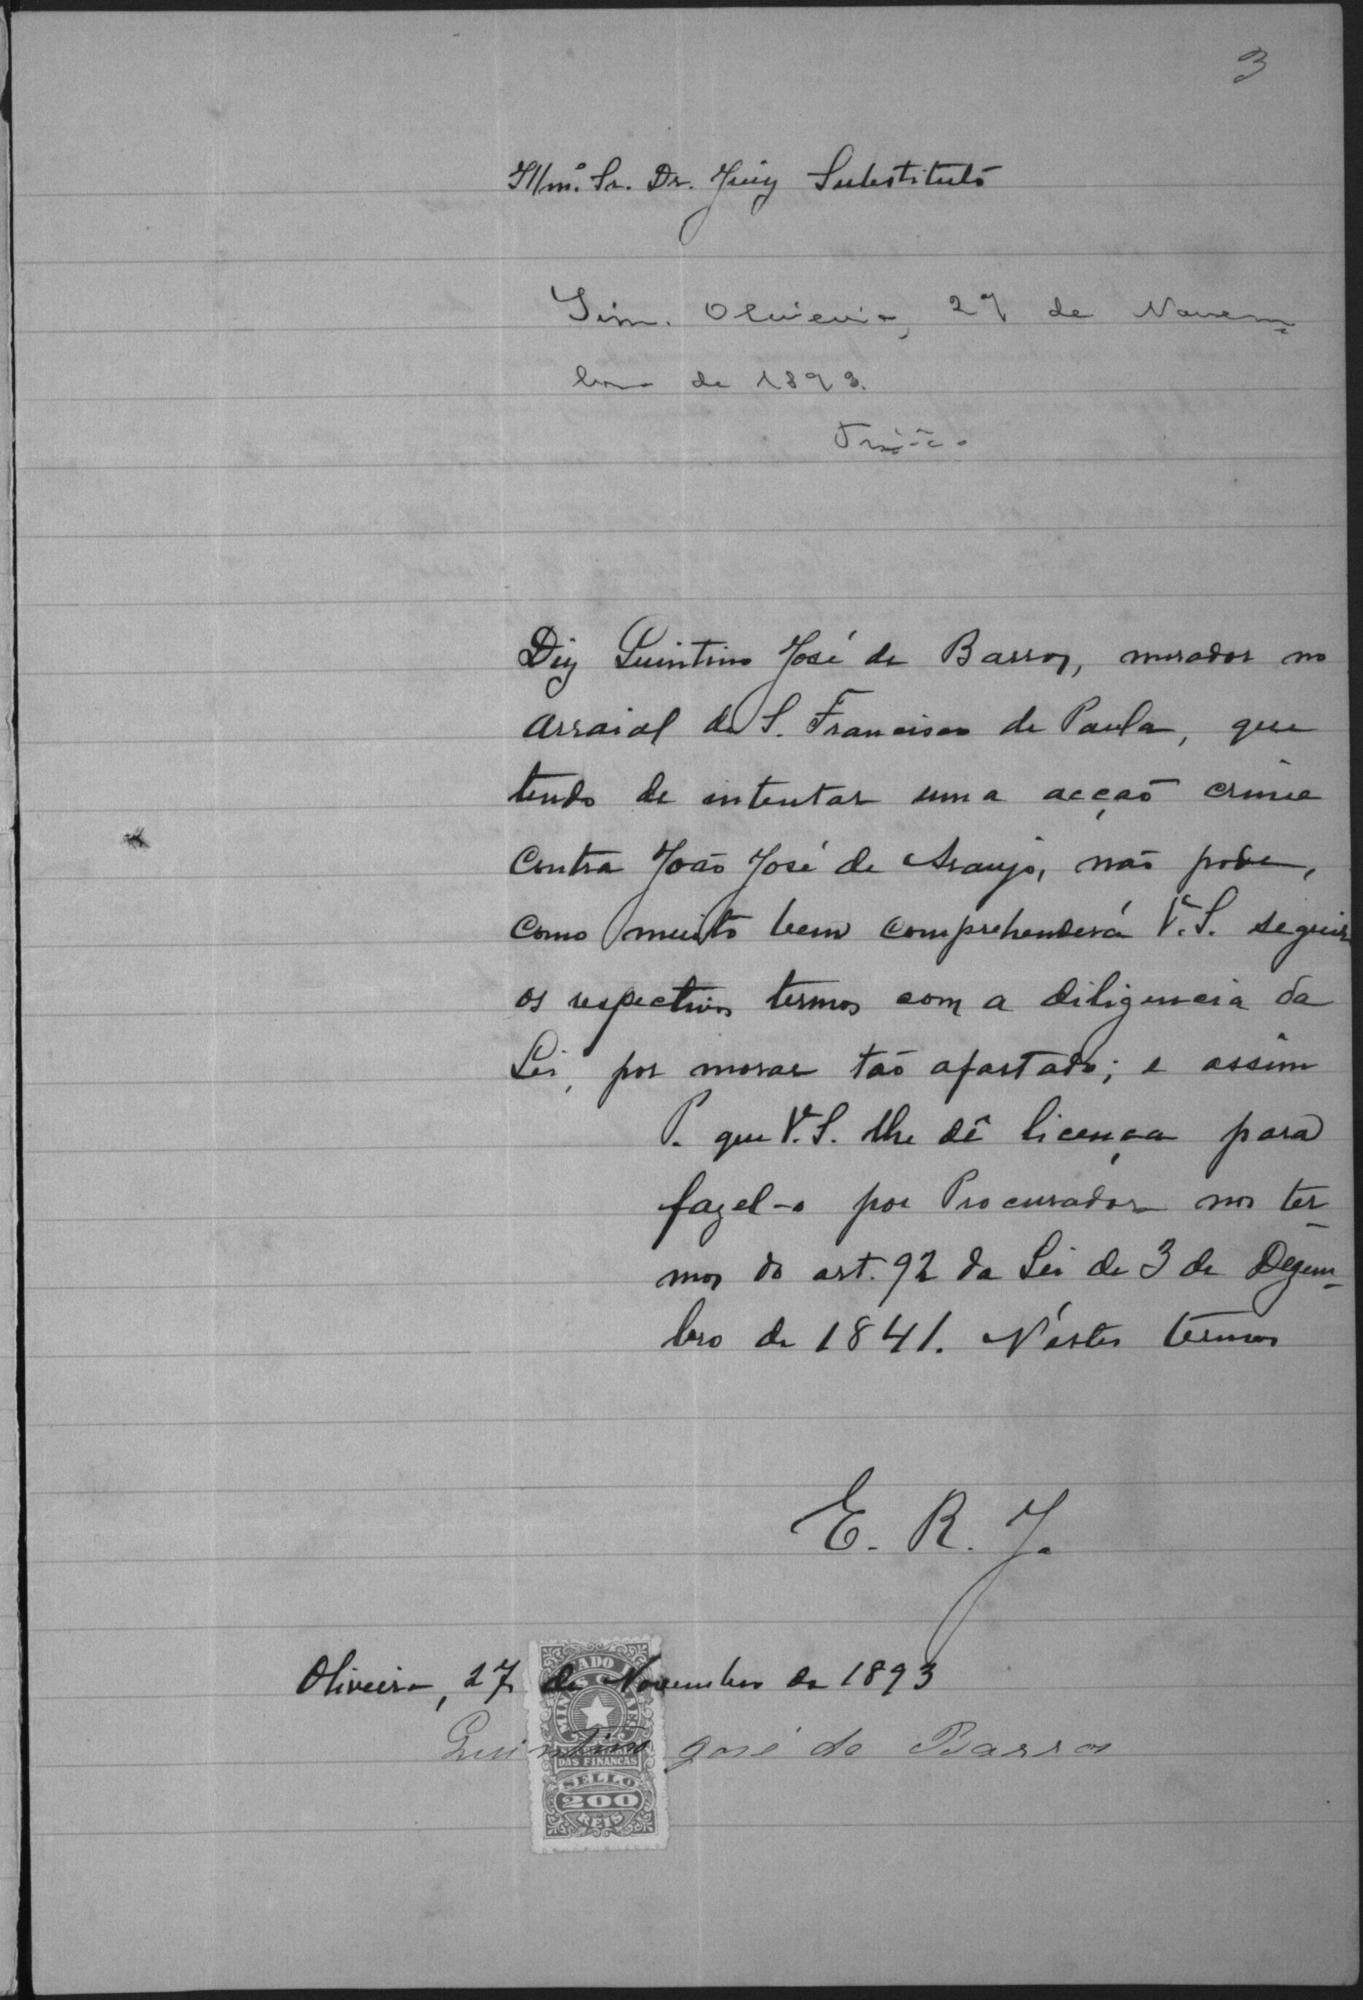 3
Illmº. Sr. Dr. Juiz Substituto
Sim. Oliveira, 27 de Novem-
bro de 1893.
Diz Quintino José de Barros, morador no
arraial de S. Francisco de Paula, que
tendo de intentar uma acção crime
contra João José de Araujo, não pode,
como muito bem comprehenderá Vª. S. seguir
os respectivos termos com a diligencia da
Lei, por morar tão afastado; e assim
P. que Vª. S. lhe dê licença para
fazel-o por Procurador nos ter-
mos do art. 92 da Lei de 3 de Dezem-
bro de 1841. N'estes termos
E. R. J.
Oliveira, 27 de Novembro de 1893
Quintino José de Barros
ESTADO DE
MINAS GERAES
DAS FINANÇAS
SELLO
200
REIS